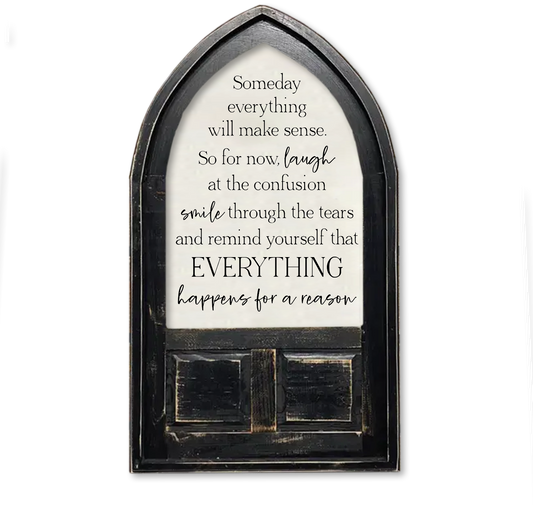 Someday
everything
will make sense.
So for now, laugh
at the confusion
smile through the tears
and remind yourself that
EVERYTHING
happens for a reason